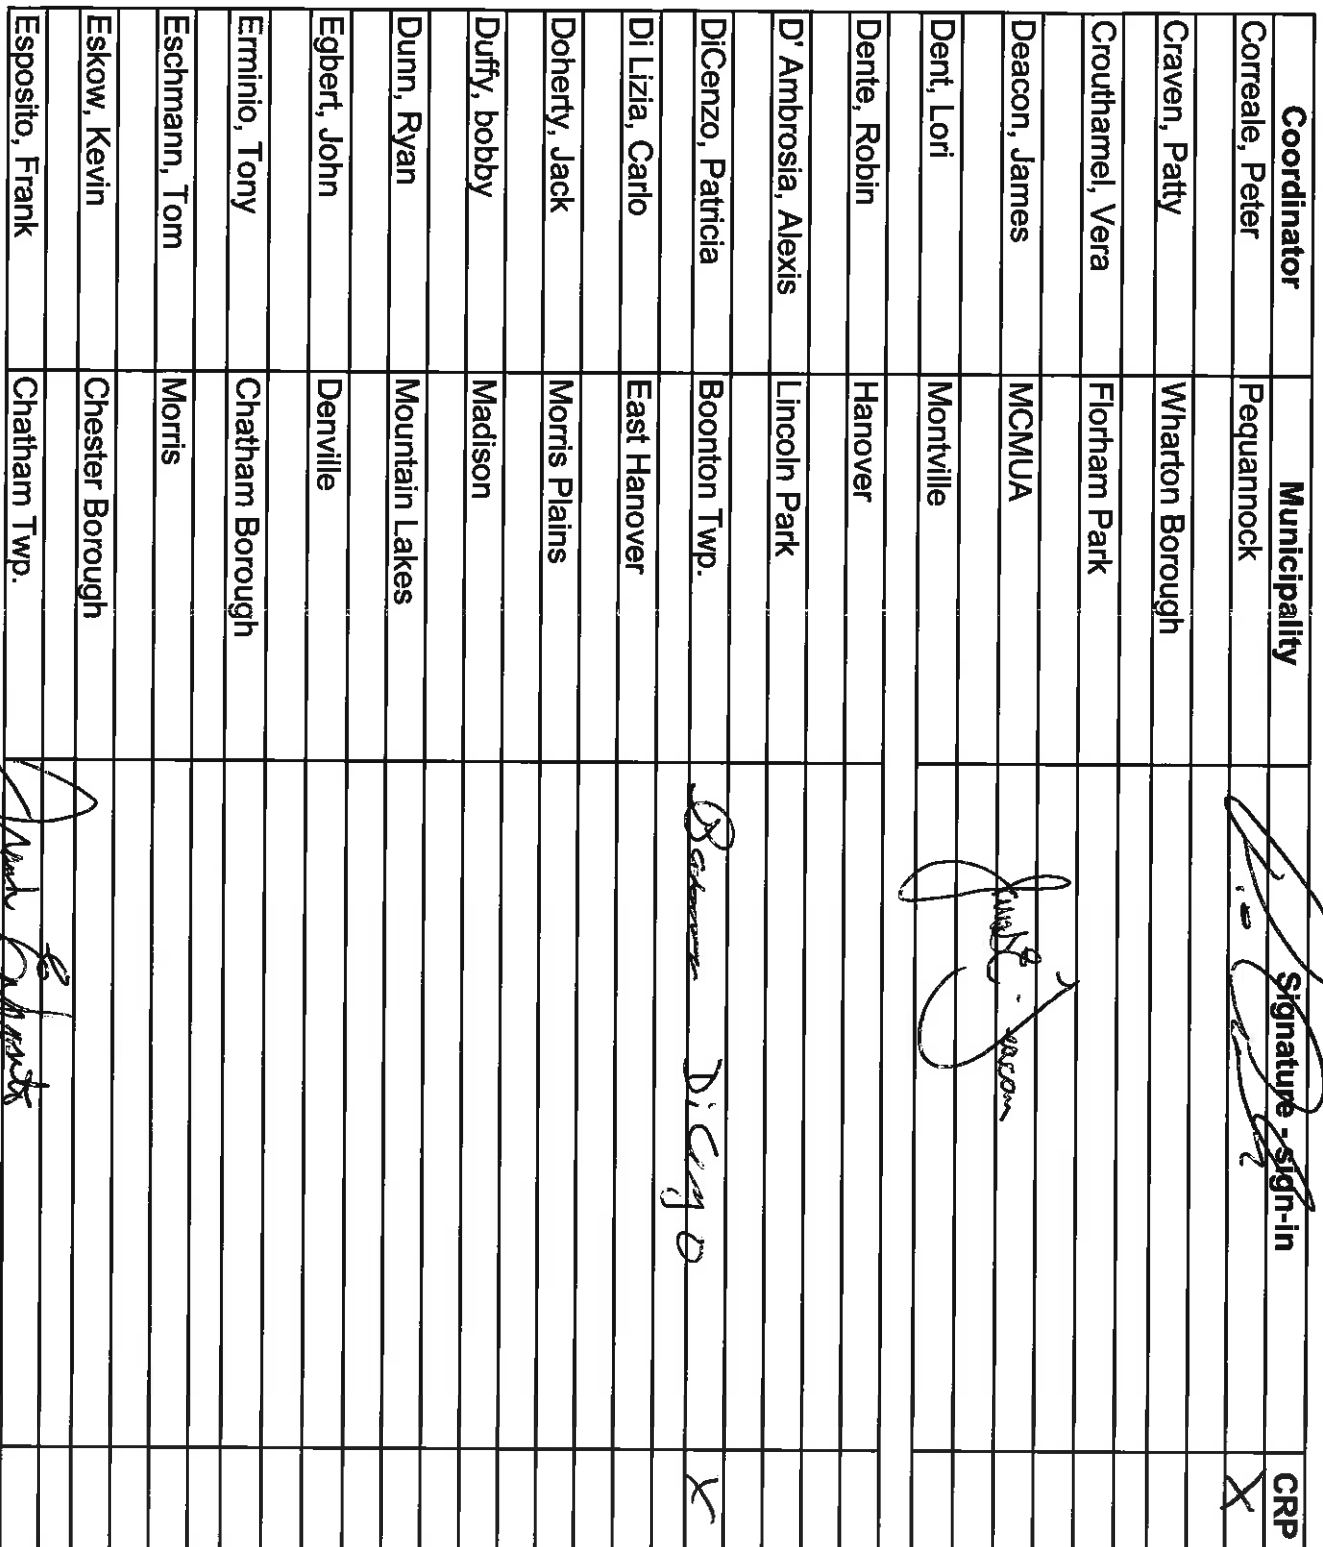 Coordinator Municipality Signature - sign-in CRP
Correale, Peter Pequannock X
Craven, Patty Wharton Borough
Crouthamel, Vera Florham Park
Deacon, James MCMUA
Dent, Lori Montville
Dente, Robin Hanover
D' Ambrosia, Alexis Lincoln Park
DiCenzo, Patricia Boonton Twp. X
Di Lizia, Carlo East Hanover
Doherty, Jack Morris Plains
Duffy, bobby Madison
Dunn, Ryan Mountain Lakes
Egbert, John Denville
Erminio, Tony Chatham Borough
Eschmann, Tom Morris
Eskow, Kevin Chester Borough
Esposito, Frank Chatham Twp.